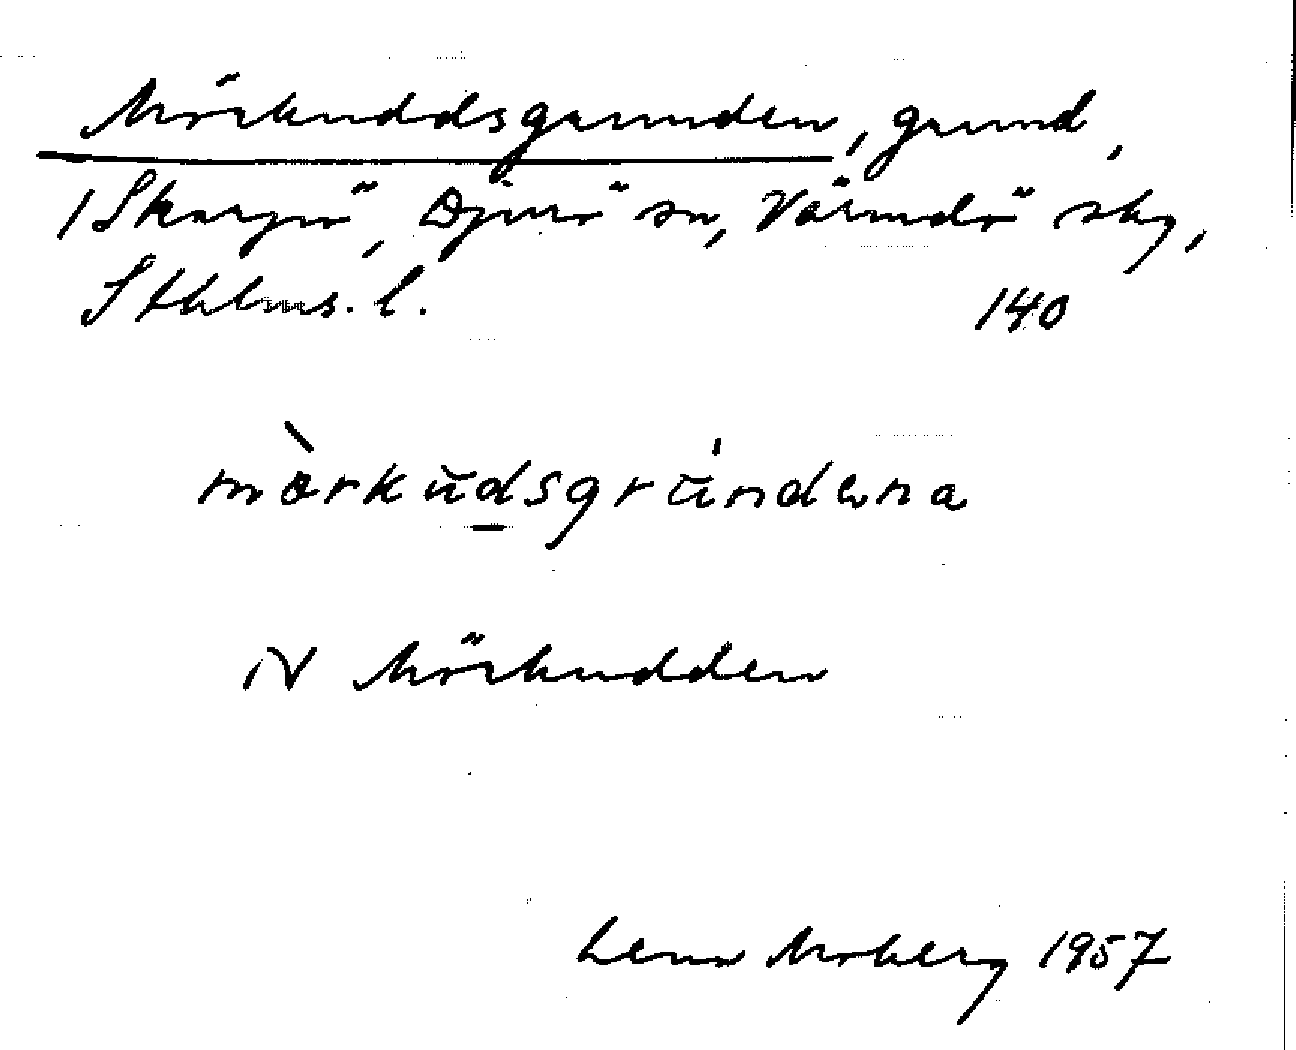 Mörkuddsgrunden, grund,
/Skarpö, Djurö sn, Värmdö skg,
Sthlms. l. 140
mòrkŭdsgrŭndɘna
N Mörkudden
Lena Moberg 1957